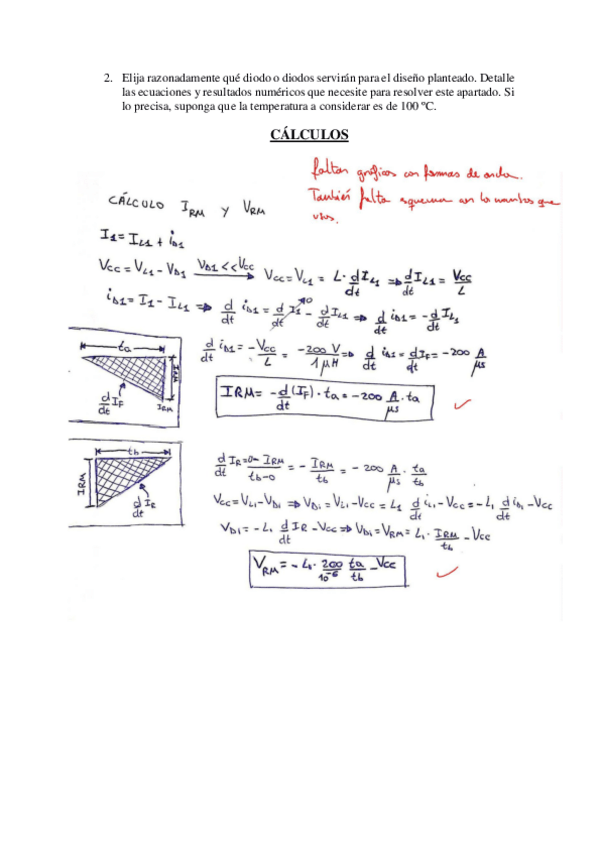 2. Elija razonadamente qué diodo o diodos servirán para el diseño planteado. Detalle
las ecuaciones y resultados numéricos que necesite para resolver este apartado. Si
lo precisa, suponga que la temperatura a considerar es de 100 ºC.
CÁLCULOS
faltan gráficos con formas de onda.
También falta esquema con los nombres que
usas.
CÁLCULO IRM y VRM
I1 = IL1 + iD1
Vcc = VL1 - VD1 VD1<<Vcc → Vcc = VL1 = L · dIL1/dt => dIL1/dt = Vcc/L
iD1 = I1 - IL1 => d/dt iD1 = d/dt I1 - d/dt IL1 => d/dt iD1 = - d/dt IL1
ta
IRM
d/dt IF
IRM
d/dt iD1 = -Vcc/L = -200 V/1 µH => d/dt iD1 = d/dt IF = -200 A/µs
IRM = -d(IF)/dt · ta = -200 A/µs · ta
tb
IRM
d/dt IR
d/dt IR = 0 - IRM/tb-0 = - IRM/tb = -200 A/µs · ta/tb
Vcc = VL1 - VD1 => VD1 = VL1 - Vcc = L1 d/dt iL1 - Vcc = -L1 d/dt iD1 - Vcc
VD1 = -L1 d/dt IR - Vcc => VD1 = VRM = L1 · IRM/tb - Vcc
VRM = -L1 · 200/10^-6 ta/tb - Vcc